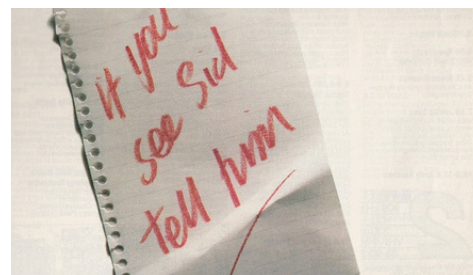 if you
see Sid
tell him